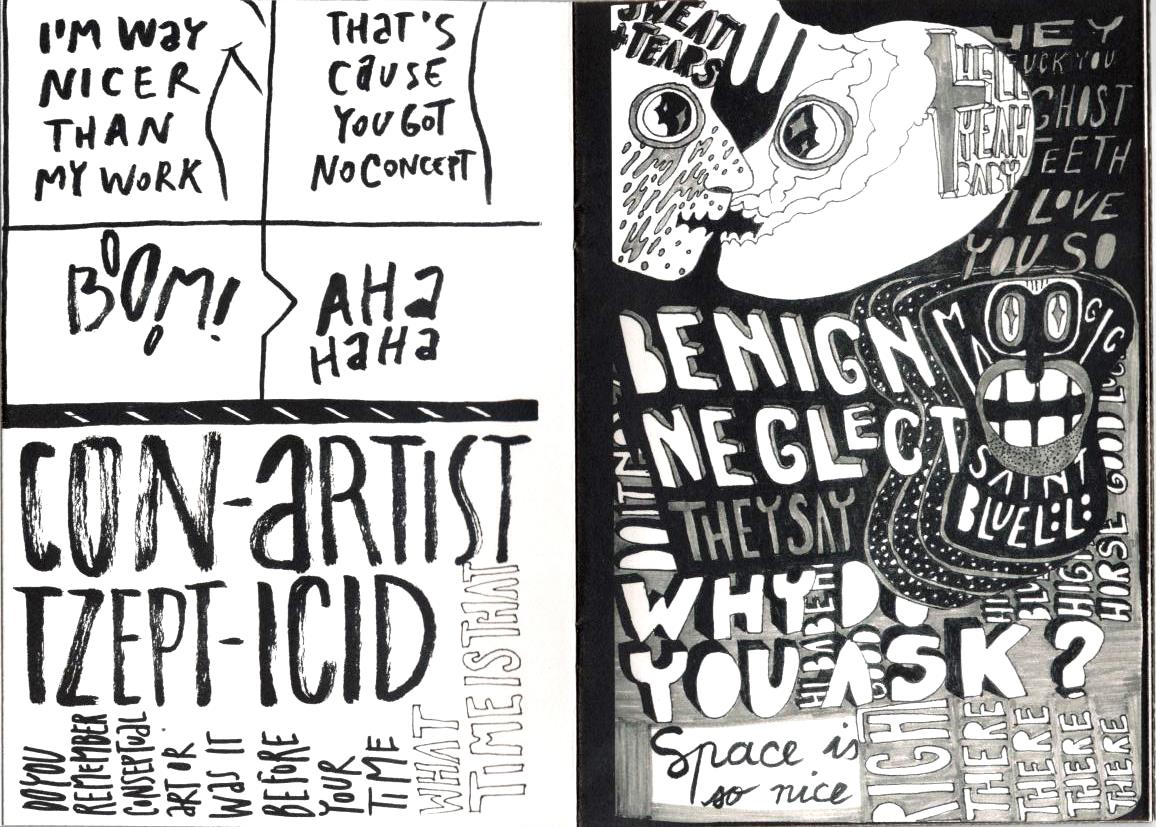 I'M WAY
NICER
THAN
MY WORK
THAT'S
CAUSE
YOU GOT
NO CONCEPT
BOOM!
AHA
HAHA
CON-ARTIST
TZEPT-ICID
DO YOU
REMEMBER
CONSEPTUAL
ART OR
WAS IT
BEFORE
YOUR
TIME
WHAT
TIME IS THAT
SWEAT
+TEARS
HELL
YEAH
BABY
HEY
FUCK YOU
GHOST
TEETH
I LOVE
YOU SO
BENIGN
NEGLECT
THEY SAY
MAGIC
SAINT
BLUEL:L:
WHY DO
YOU ASK?
HORSE GOOD
HI BABE
Space is
so nice
RIGH
THERE
THERE
THERE
THERE